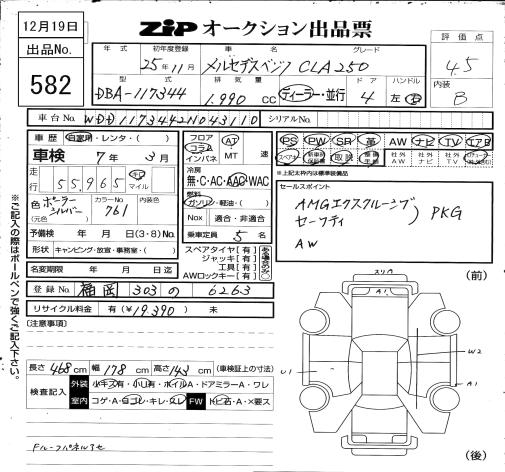 12月19日
ZIP オークション出品票
出品No.
582
年式
初年度登録
25年11月
車名
メルセデスベンツ CLA250
グレード
評価点
4.5
内装
B
型式
DBA-117344
排気量
1.990 cc
ディーラー・並行
ドア
4
ハンドル
左 右
車台No.
WDD1173442N043110
シリアルNo.
車歴 自家用・レンタ・( )
車検 7年 3月
走行
55,965
キロ
マイル
色
ポーラーシルバー
(元色)
カラーNo.
761
内装色
予備検 年 月 日(3・8)No.
形状 キャンピング・放宣・事務室・( )
名変期限 年 月 日迄
フロア
コラム
インパネ
AT
MT 速
冷房
無・C・AC・AAC・WAC
燃料
ガソリン・軽油・( )
Nox 適合・非適合
乗車定員 5 名
スペアタイヤ[有]
ジャッキ[有]
工具[有]
AWロックキー[有]
PS PW SR 革 AW ナビ TV エアB
スペアキー 新車時保証書 取説 整備手帳 社外AW 社外ナビ 社外TV
※上記太枠内は標準装備品
セールスポイント
AMGエクスクルーシブ
セーフティ
PKG
AW
登録No. 福岡 303 の 6263
リサイクル料金 有(¥19,390) 未
(注意事項)
長さ 468 cm 幅 178 cm 高さ 143 cm (車検証上の寸法)
検査記入
外装 小キズ有・小凹有・ホイルA・ドアミラーA・ワレ
室内 コゲ・A・ヨゴレ・キレ・スレ FW トビ石・A・X要ス
ドルーフパネルアセ
※ご記入の際はボールペンで強くご記入下さい。
(前)
スリ
A1
W2
U1
A1
(後)